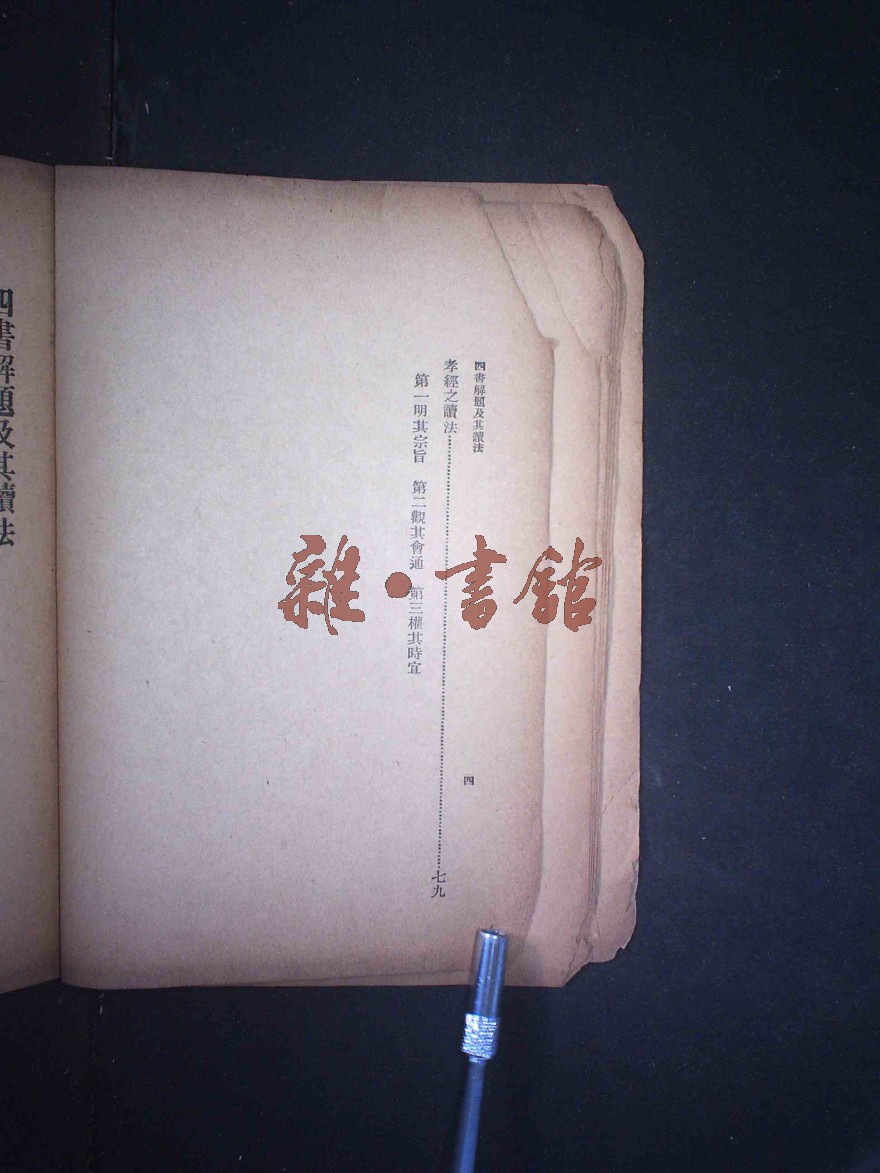 四書解題及其讀法
四
孝經之讀法⋯⋯⋯⋯⋯⋯⋯⋯⋯⋯七九
第一明其宗旨　第二觀其會通　第三權其時宜
四書解題及其讀法
雜·書館